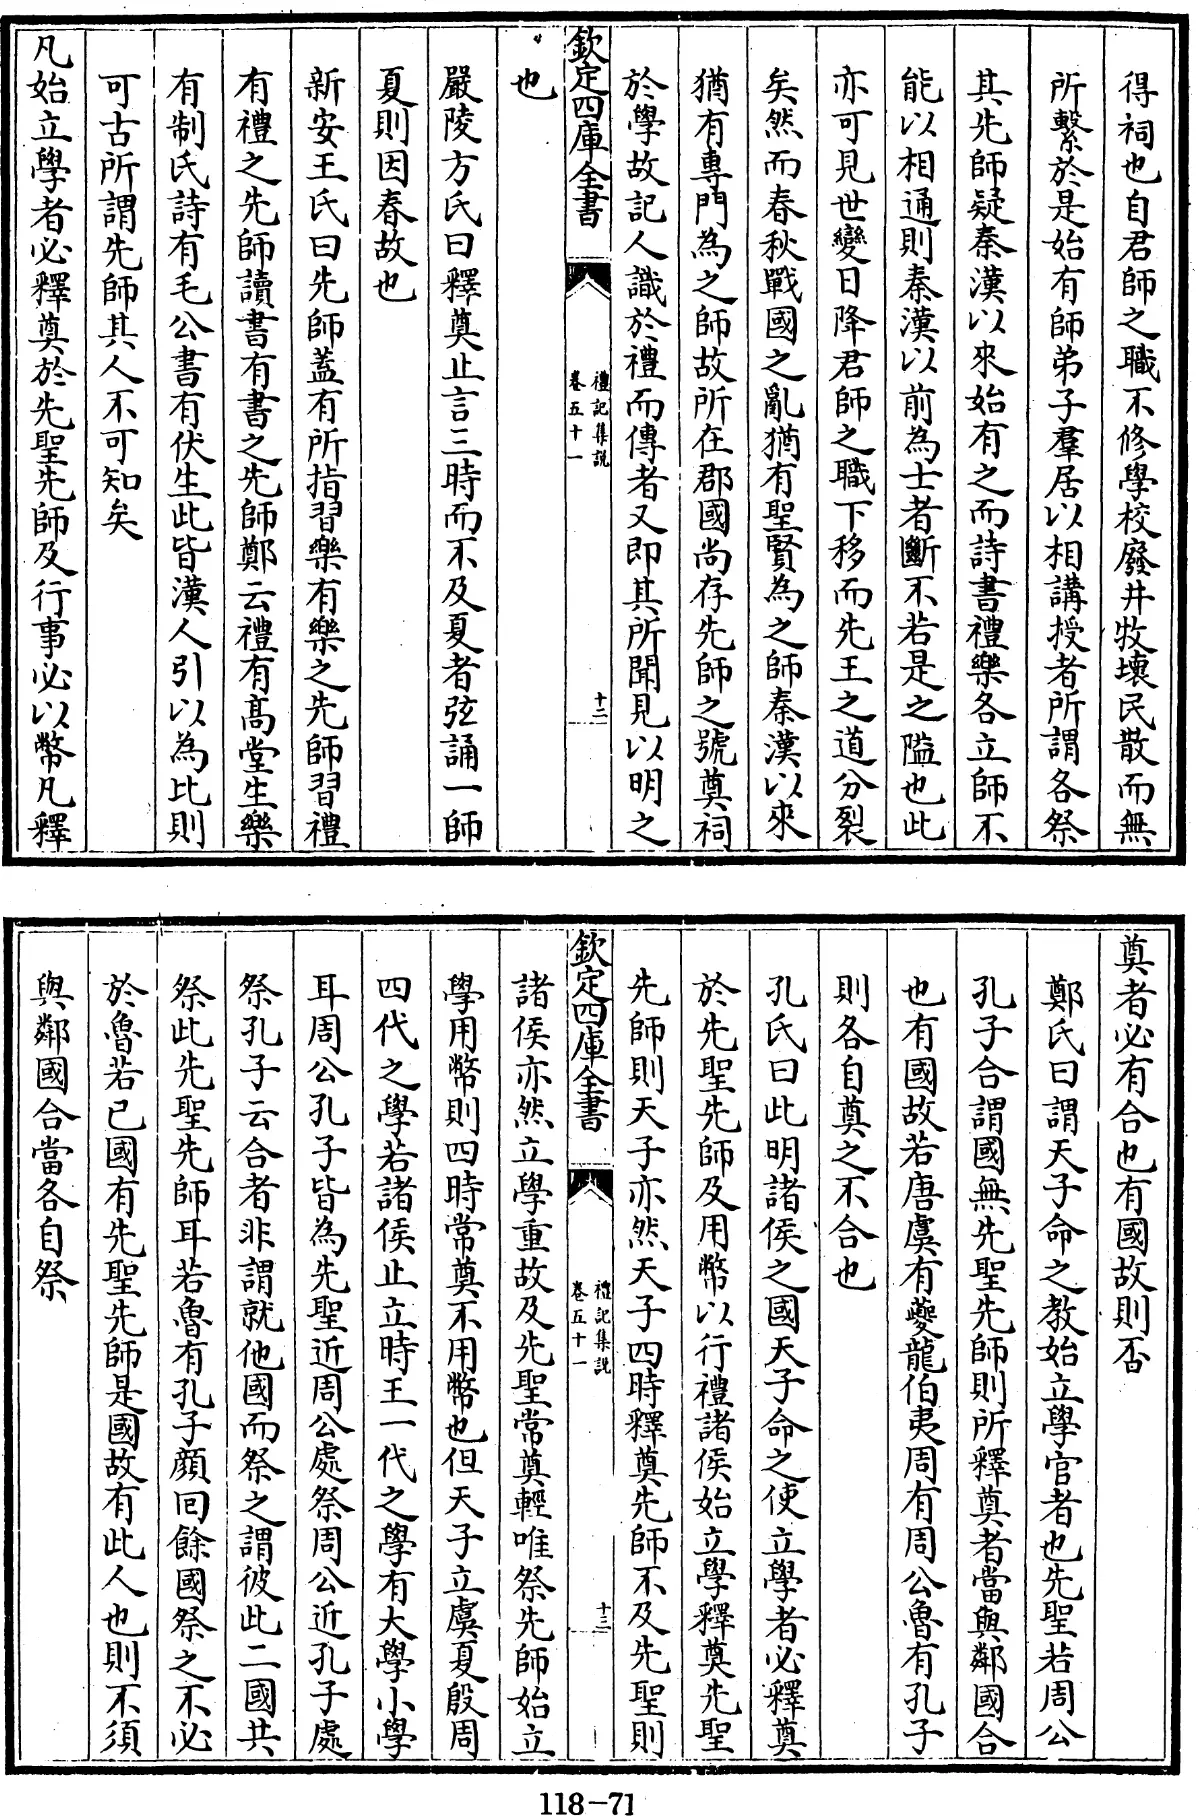 得祠也自君師之職不修學校廢井牧壞民散而無
所繫於是始有師弟子羣居以相講授者所謂各祭
其先師疑秦漢以來始有之而詩書禮樂各立師不
能以相通則秦漢以前為士者斷不若是之隘也此
亦可見世變日降君師之職下移而先王之道分裂
矣然而春秋戰國之亂猶有聖賢為之師秦漢以來
猶有專門為之師故所在郡國尚存先師之號奠祠
於學故記人識於禮而傳者又即其所聞見以明之
欽定四庫全書
禮記集說
卷五十一
十二
也
嚴陵方氏曰釋奠止言三時而不及夏者弦誦一師
夏則因春故也
新安王氏曰先師蓋有所指習樂有樂之先師習禮
有禮之先師讀書有書之先師鄭云禮有髙堂生樂
有制氏詩有毛公書有伏生此皆漢人引以為比則
可古所謂先師其人不可知矣
凡始立學者必釋奠於先聖先師及行事必以幣凡釋
奠者必有合也有國故則否
鄭氏曰謂天子命之教始立學官者也先聖若周公
孔子合謂國無先聖先師則所釋奠者當與鄰國合
也有國故若唐虞有夔龍伯夷周有周公魯有孔子
則各自奠之不合也
孔氏曰此明諸侯之國天子命之使立學者必釋奠
於先聖先師及用幣以行禮諸侯始立學釋奠先聖
先師則天子亦然天子四時釋奠先師不及先聖則
欽定四庫全書
禮記集說
卷五十一
十三
諸侯亦然立學重故及先聖常奠輕唯祭先師始立
學用幣則四時常奠不用幣也但天子立虞夏殷周
四代之學若諸侯止立時王一代之學有大學小學
耳周公孔子皆為先聖近周公處祭周公近孔子處
祭孔子云合者非謂就他國而祭之謂彼此二國共
祭此先聖先師耳若魯有孔子顔回餘國祭之不必
於魯若己國有先聖先師是國故有此人也則不須
與鄰國合當各自祭
118-71